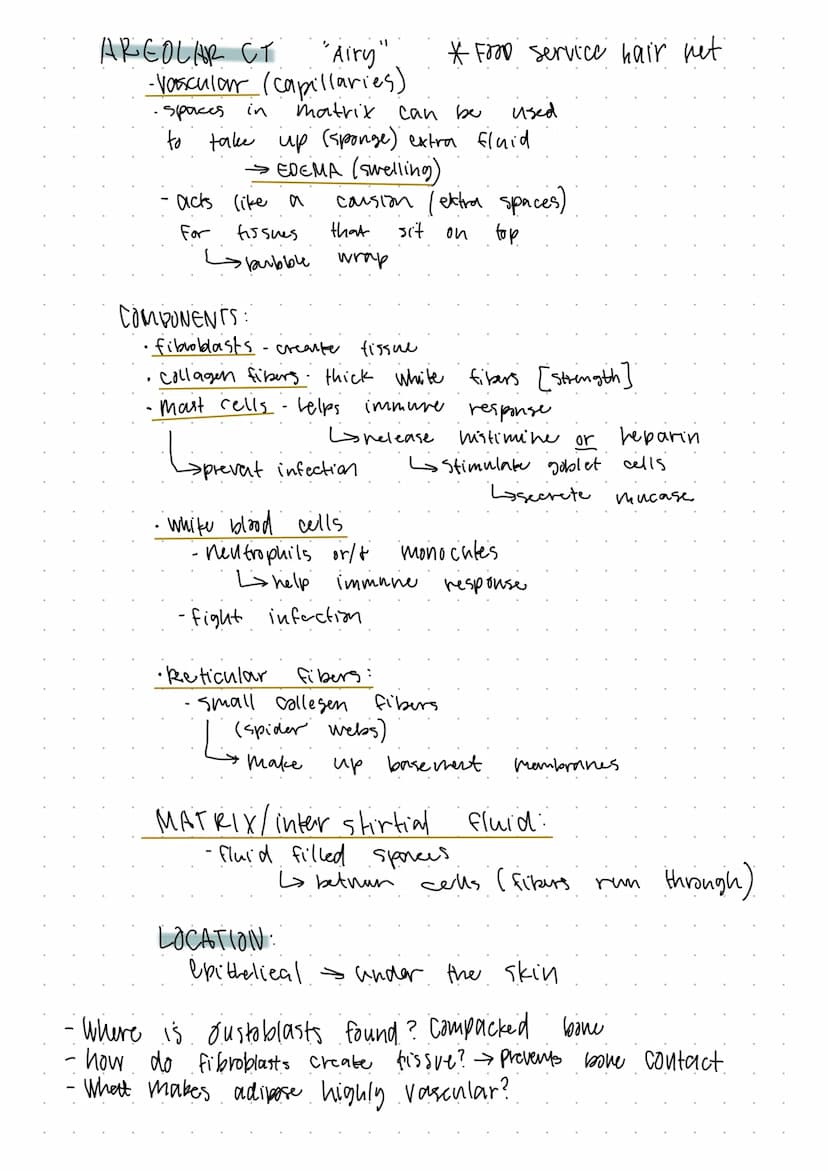 AREOLAR CT "Airy" * Food service hair net
-Vascular (capillaries)
· spaces in matrix can be used
to take up (sponge) extra fluid
→ EDEMA (swelling)
- acts like a causion (extra spaces)
For tissues that sit on top
↳ bubble wrap
COMPONENTS:
· fibroblasts - create tissue
· collagen fibers - thick white fibers [strength]
· Mast cells - helps immune response
↳ release histimine or heparin
↳ prevent infection ↳ stimulate goblet cells
↳ secrete mucase
· white blood cells
- neutrophils or/t monocutes
↳ help immune response
- fight infection
· Reticular fibers:
- small collegen fibers
(spider webs)
↳ make up basement membranes
MATRIX/inter stirtial fluid:
- fluid filled spaces
↳ between cells (fibers run through)
LOCATION:
Epithelieal → under the skin
- Where is oustoblasts found? Compacked bone
- how do fibroblasts create tissue? → Prevents bone contact
- What makes adipose highly vascular?